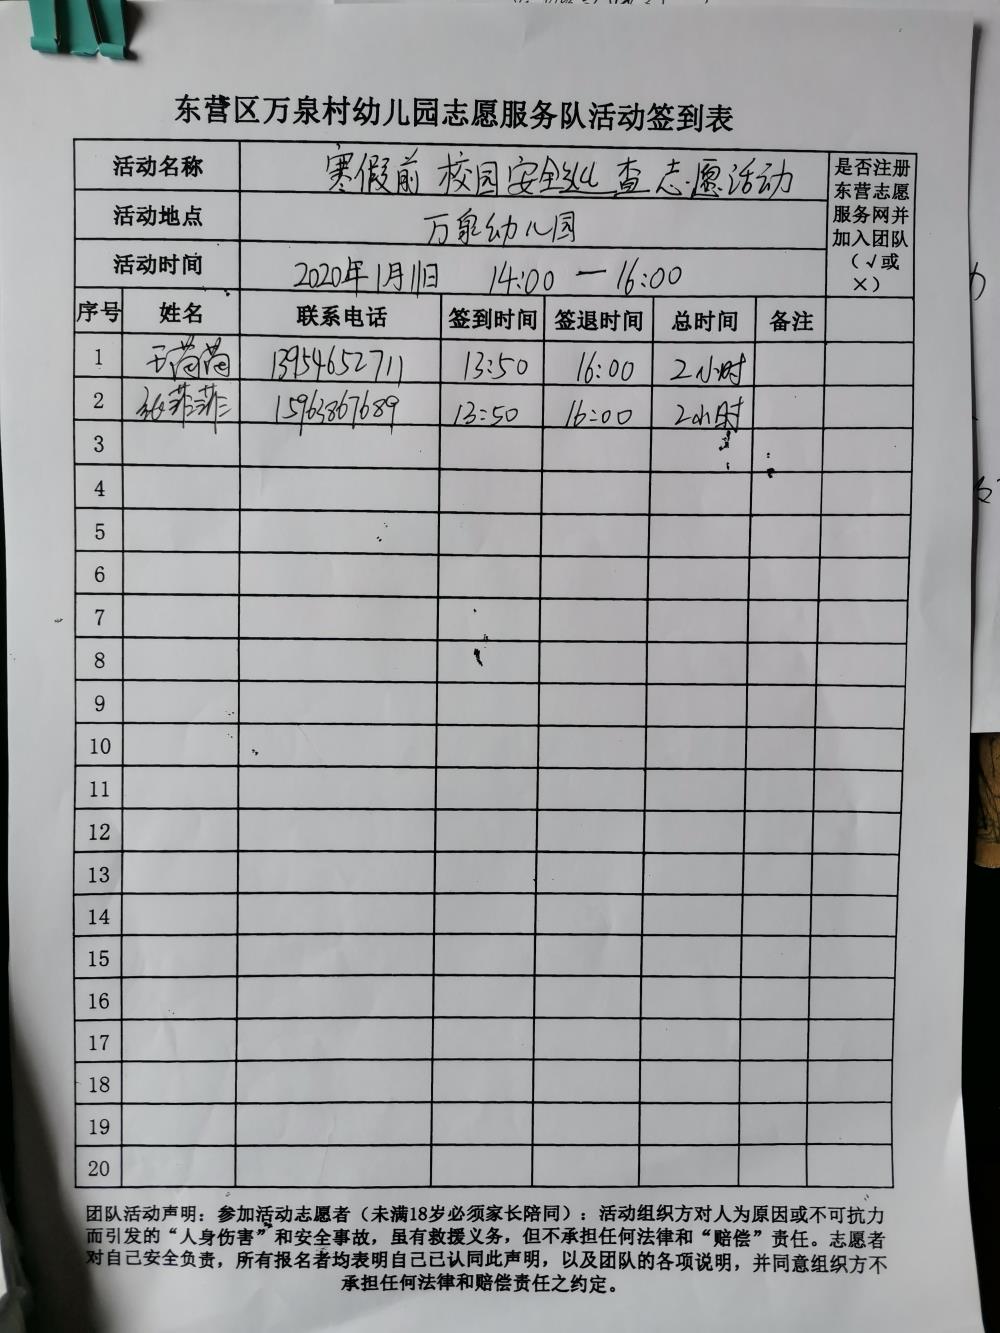 东营区万泉村幼儿园志愿服务队活动签到表
活动名称 寒假前校园安全 查志愿活动
是否注册
东营志愿
服务网并
加入团队
（√或
×）
活动地点 万泉幼儿园
活动时间 2020年1月11日 14:00—16:00
序号 姓名 联系电话 签到时间 签退时间 总时间 备注
1 王茵茵 13954652711 13:50 16:00 2小时
2 张菲菲 15963867689 13:50 16:00 2小时
3
4
5
6
7
8
9
10
11
12
13
14
15
16
17
18
19
20
团队活动声明：参加活动志愿者（未满18岁必须家长陪同）：活动组织方对人为原因或不可抗力
而引发的“人身伤害”和安全事故，虽有救援义务，但不承担任何法律和“赔偿”责任。志愿者
对自己安全负责，所有报名者均表明自己已认同此声明，以及团队的各项说明，并同意组织方不
承担任何法律和赔偿责任之约定。